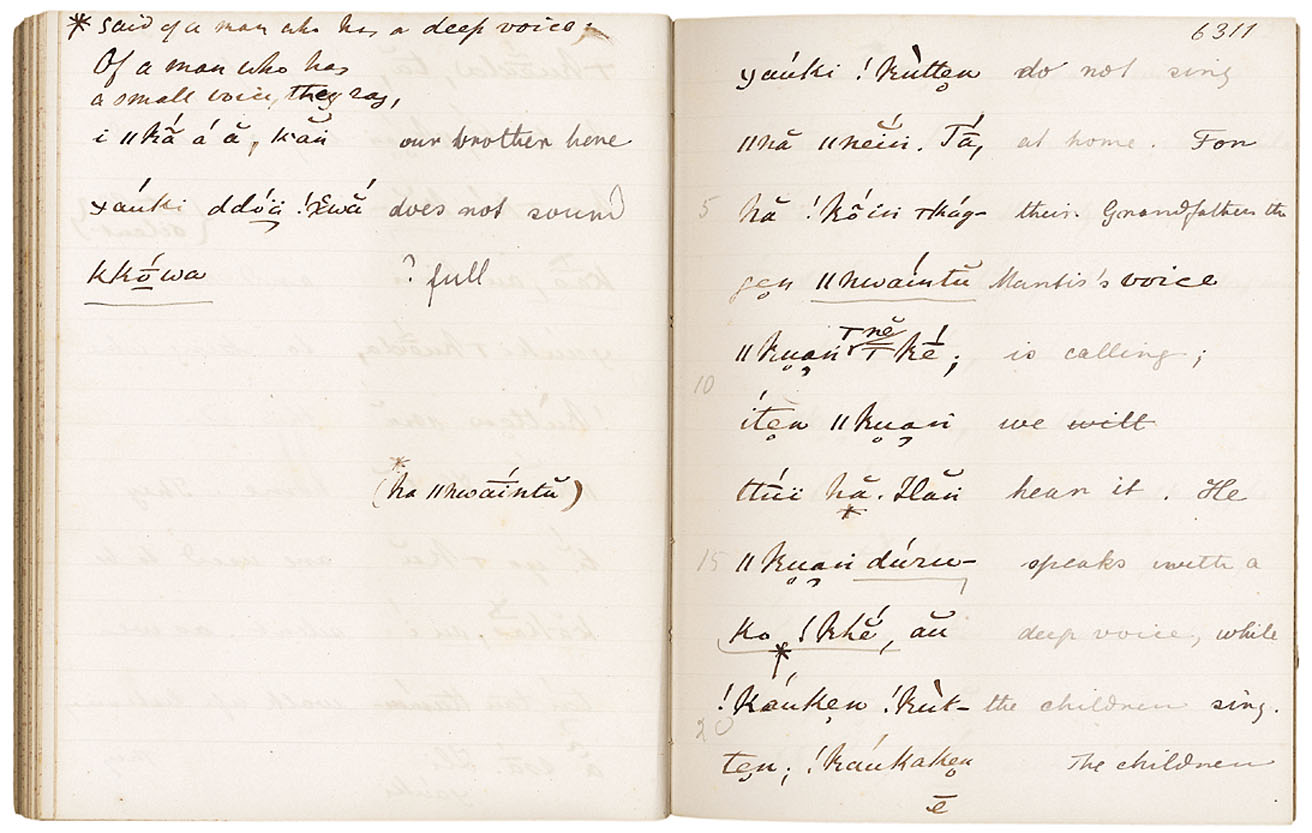 * said of a man who has a deep voice;
Of a man who has
a small voice, they say,
i ǁkā́̆ á ă, kăn̄ our brother here
χáuki ddóä !χwā́ does not sound
kkṓwa ? full
*
(ha ǁnwāíntŭ)
6311
yaúki !kùttẹn do not sing
ǁnă ǁnéĭn. Tā́, at home. For
5 hă !kṓin ǂkág- their Grandfather the
gẹn ǁnwáintŭ Mantis's voice
ǁkụạn ⊤nĕ ⊤ké; is calling;
10
ítẹn ǁkụạn we will
ttúï hă. Hăn hear it. He
*
15 ǁkụạn dúru- speaks with a
ko !khĕ́, ău deep voice, while
*
!káukẹn !kùt- the children sing.
20
tẹn; !káukakẹn The children
ē